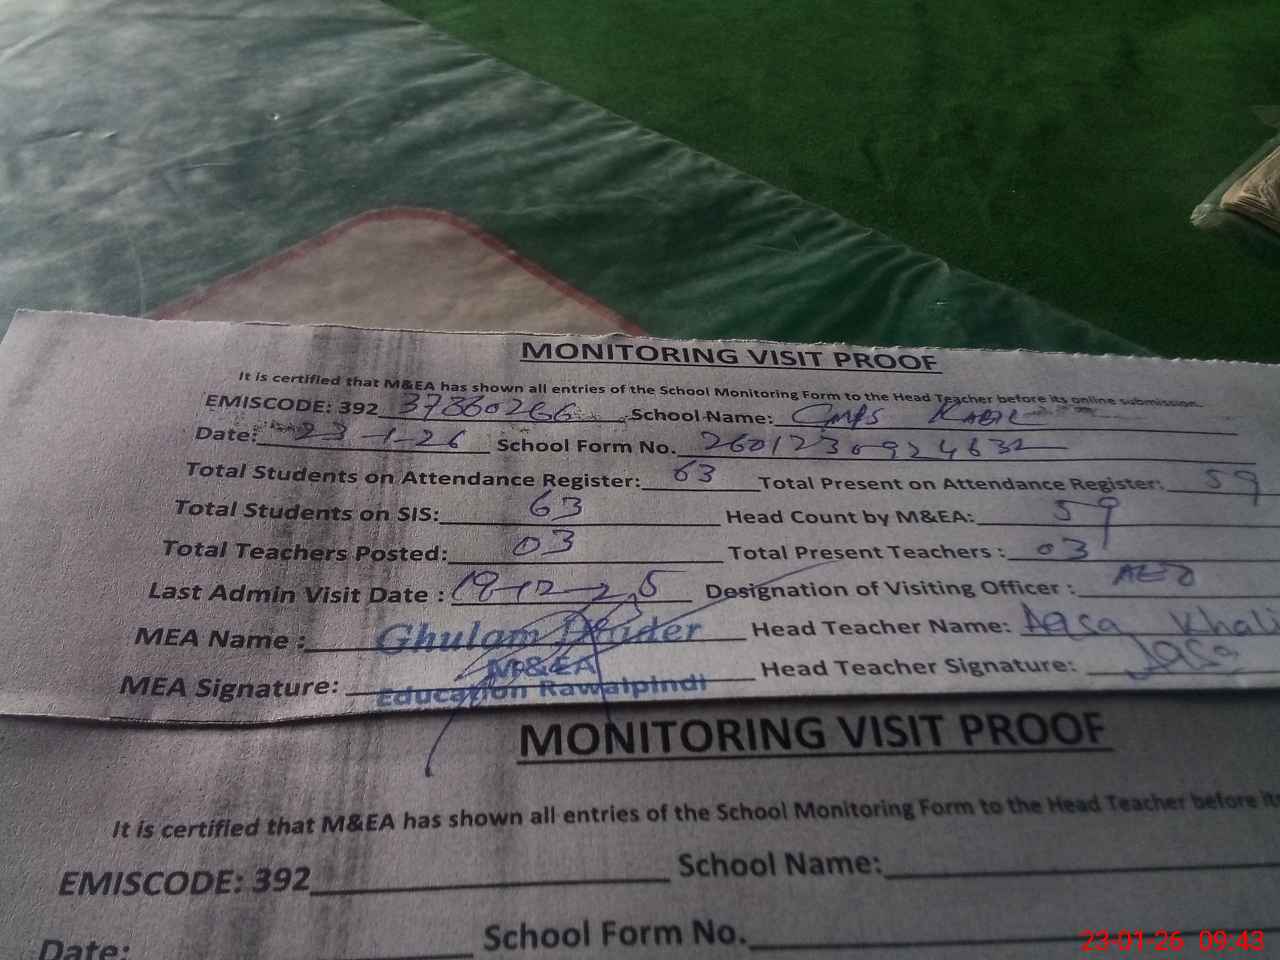 MONITORING VISIT PROOF
It is certified that M&EA has shown all entries of the School Monitoring Form to the Head Teacher before its online submission.
EMISCODE: 392 37360266 School Name: GMPS KABIL
Date: 23-1-26 School Form No. 2601230924632
Total Students on Attendance Register: 63 Total Present on Attendance Register: 59
Total Students on SIS: 63 Head Count by M&EA: 59
Total Teachers Posted: 03 Total Present Teachers : 03
Last Admin Visit Date : 19-12-25 Designation of Visiting Officer : AEO
MEA Name : Ghulam Head Teacher Name: Aqsa Khali
M&EA
MEA Signature: Education Rawalpindi Head Teacher Signature: Aqsa
MONITORING VISIT PROOF
It is certified that M&EA has shown all entries of the School Monitoring Form to the Head Teacher before its
EMISCODE: 392 School Name:
Date: School Form No.
23-01-26 09:43